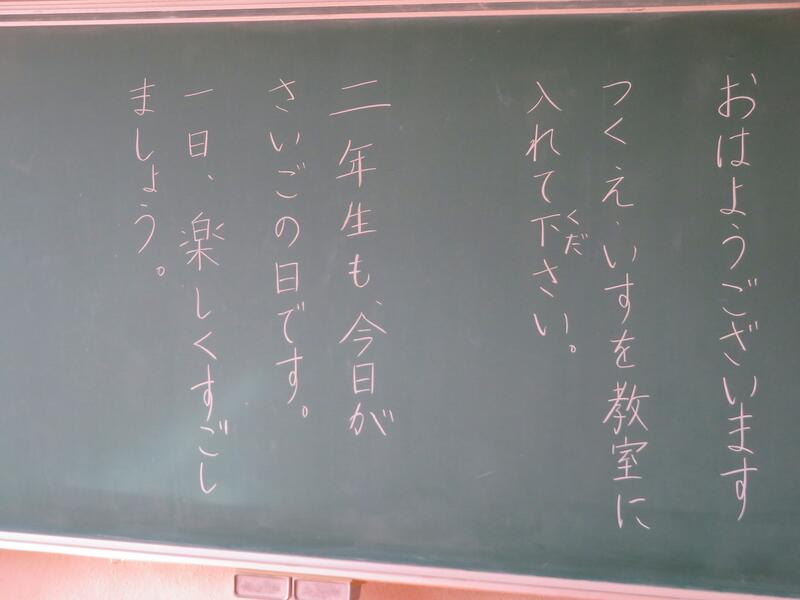 おはようございます
つくえ・いすを教室に
入れて下さい。
くだ
二年生も、今日が
さいごの日です。
一日、楽しくすごし
ましょう。